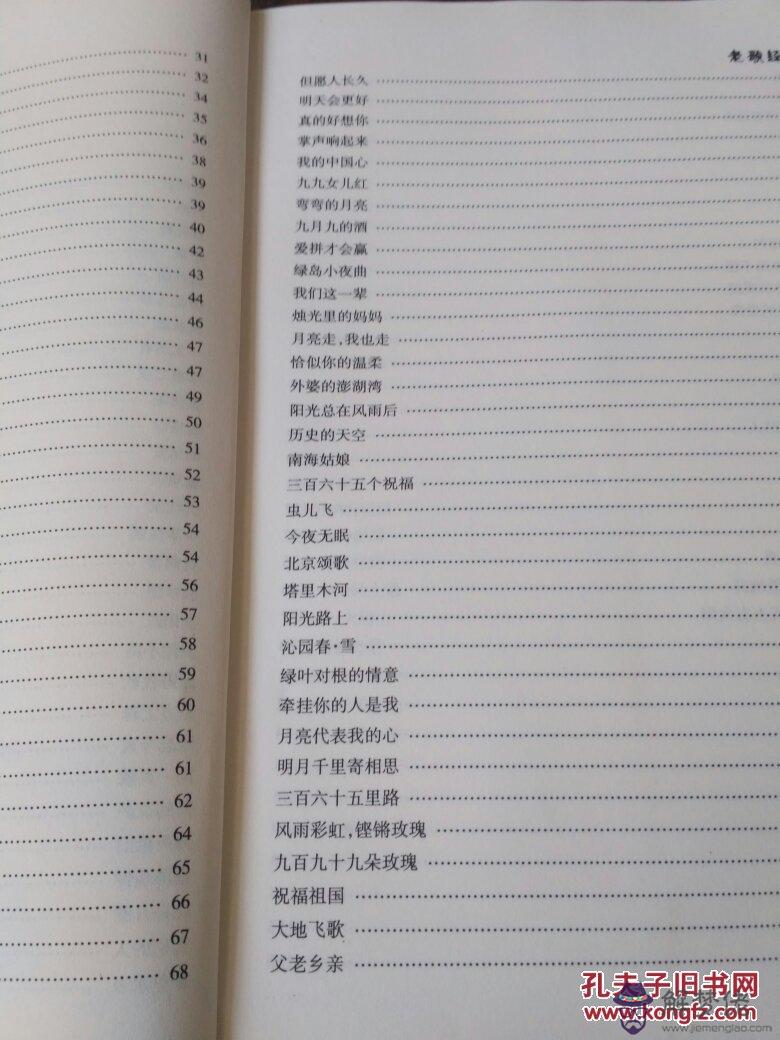 31
32
34
35
36
38
39
39
40
42
43
44
46
47
47
49
50
51
52
53
54
54
56
57
58
59
60
61
61
62
64
65
66
67
68
老歌经
但愿人长久
明天会更好
真的好想你
掌声响起来
我的中国心
九九女儿红
弯弯的月亮
九月九的酒
爱拼才会赢
绿岛小夜曲
我们这一辈
烛光里的妈妈
月亮走,我也走
恰似你的温柔
外婆的澎湖湾
阳光总在风雨后
历史的天空
南海姑娘
三百六十五个祝福
虫儿飞
今夜无眠
北京颂歌
塔里木河
阳光路上
沁园春·雪
绿叶对根的情意
牵挂你的人是我
月亮代表我的心
明月千里寄相思
三百六十五里路
风雨彩虹,铿锵玫瑰
九百九十九朵玫瑰
祝福祖国
大地飞歌
父老乡亲
孔夫子旧书网
www.kongfz.com
解梦佬
www.jiemenglao.com